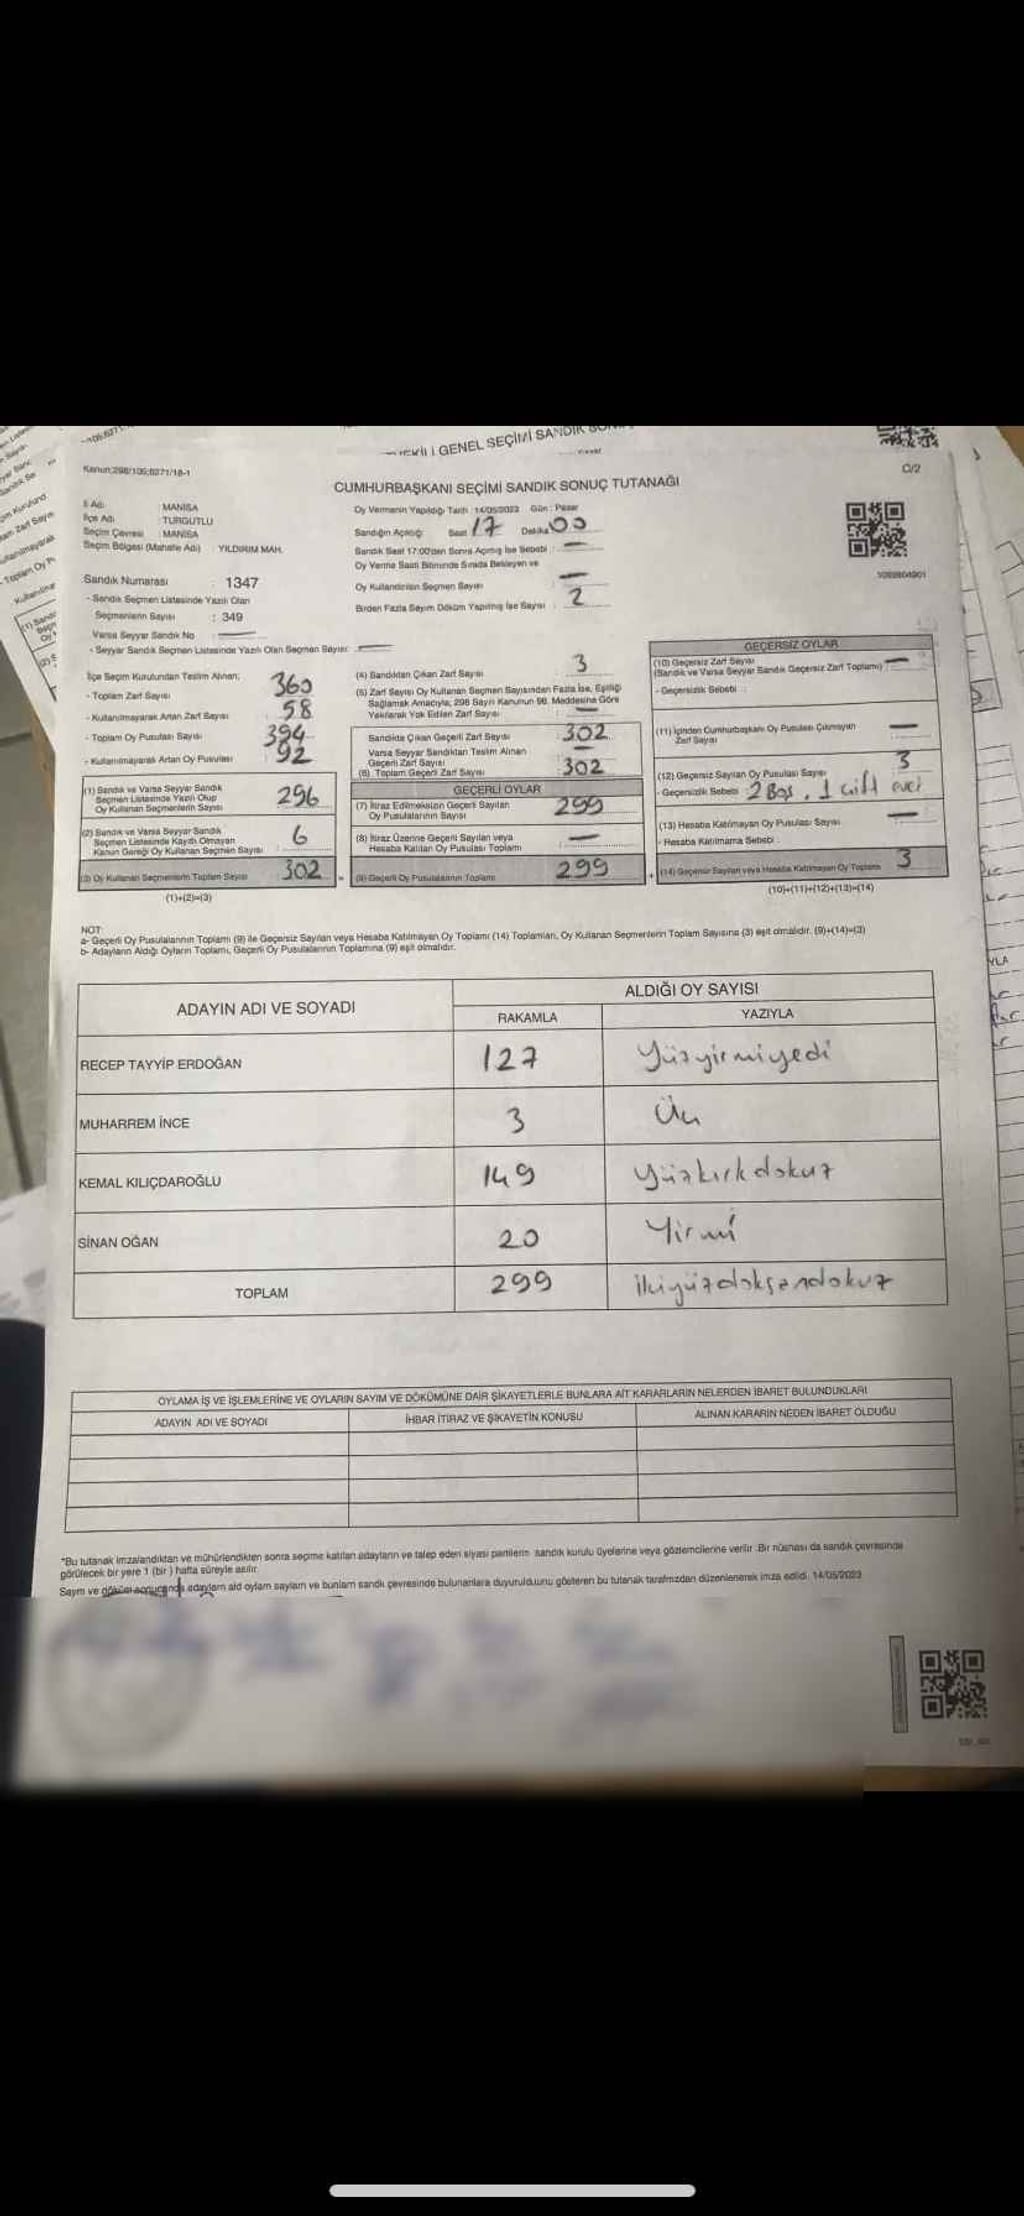 GENEL SEÇİMİ SANDIK
Kanun:298/105;6271/18-1
C/2
CUMHURBAŞKANI SEÇİMİ SANDIK SONUÇ TUTANAĞI
İl Adı : MANİSA
İlçe Adı : TURGUTLU
Seçim Çevresi : MANİSA
Seçim Bölgesi (Mahalle Adı) : YILDIRIM MAH.
Sandık Numarası : 1347
- Sandık Seçmen Listesinde Yazılı Olan
Seçmenlerin Sayısı : 349
Varsa Seyyar Sandık No
- Seyyar Sandık Seçmen Listesinde Yazılı Olan Seçmen Sayısı:
Oy Vermenin Yapıldığı Tarih : 14/05/2023 Gün : Pazar
Sandığın Açılışı: Saat 17 Dakika 00
Sandık Saat 17:00'den Sonra Açılmış İse Sebebi :
Oy Verme Saati Bitiminde Sırada Bekleyen ve
Oy Kullandırılan Seçmen Sayısı
Birden Fazla Sayım Döküm Yapılmış İse Sayısı : 2
İlçe Seçim Kurulundan Teslim Alınan;
- Toplam Zarf Sayısı 360
- Kullanılmayarak Artan Zarf Sayısı 58
- Toplam Oy Pusulası Sayısı 394
- Kullanılmayarak Artan Oy Pusulası 92
(1) Sandık ve Varsa Seyyar Sandık
Seçmen Listesinde Yazılı Olup
Oy Kullanan Seçmenlerin Sayısı 296
(2) Sandık ve Varsa Seyyar Sandık
Seçmen Listesinde Kaydı Olmayan
Kanun Gereği Oy Kullanan Seçmen Sayısı 6
(3) Oy Kullanan Seçmenlerin Toplam Sayısı 302
(1)+(2)=(3)
(4) Sandıktan Çıkan Zarf Sayısı 3
(5) Zarf Sayısı Oy Kullanan Seçmen Sayısından Fazla İse, Eşitliği
Sağlamak Amacıyla, 298 Sayılı Kanunun 98. Maddesine Göre
Yakılarak Yok Edilen Zarf Sayısı
Sandıkta Çıkan Geçerli Zarf Sayısı : 302
Varsa Seyyar Sandıktan Teslim Alınan
Geçerli Zarf Sayısı
(6) Toplam Geçerli Zarf Sayısı : 302
GEÇERLİ OYLAR
(7) İtiraz Edilmeksizin Geçerli Sayılan
Oy Pusulalarının Sayısı 299
(8) İtiraz Üzerine Geçerli Sayılan veya
Hesaba Katılan Oy Pusulası Toplamı
(9) Geçerli Oy Pusulalarının Toplamı 299
GEÇERSİZ OYLAR
(10) Geçersiz Zarf Sayısı
(Sandık ve Varsa Seyyar Sandık Geçersiz Zarf Toplamı)
- Geçersizlik Sebebi :
(11) İçinden Cumhurbaşkanı Oy Pusulası Çıkmayan
Zarf Sayısı
(12) Geçersiz Sayılan Oy Pusulası Sayısı 3
- Geçersizlik Sebebi : 2 Boş, 1 çift evet
(13) Hesaba Katılmayan Oy Pusulası Sayısı
- Hesaba Katılmama Sebebi :
(14) Geçersiz Sayılan veya Hesaba Katılmayan Oy Toplamı 3
(10)+(11)+(12)+(13)=(14)
NOT:
a- Geçerli Oy Pusulalarının Toplamı (9) ile Geçersiz Sayılan veya Hesaba Katılmayan Oy Toplamı (14) Toplamları, Oy Kullanan Seçmenlerin Toplam Sayısına (3) eşit olmalıdır. (9)+(14)=(3)
b- Adayların Aldığı Oyların Toplamı, Geçerli Oy Pusulalarının Toplamına (9) eşit olmalıdır.
ADAYIN ADI VE SOYADI
ALDIĞI OY SAYISI
RAKAMLA YAZIYLA
RECEP TAYYİP ERDOĞAN 127 Yüzyirmiyedi
MUHARREM İNCE 3 Üç
KEMAL KILIÇDAROĞLU 149 yüzkırkdokuz
SİNAN OĞAN 20 Yirmi
TOPLAM 299 ikiyüzdoksandokuz
OYLAMA İŞ VE İŞLEMLERİNE VE OYLARIN SAYIM VE DÖKÜMÜNE DAİR ŞİKAYETLERLE BUNLARA AİT KARARLARIN NELERDEN İBARET BULUNDUKLARI
ADAYIN ADI VE SOYADI İHBAR İTİRAZ VE ŞİKAYETİN KONUSU ALINAN KARARIN NEDEN İBARET OLDUĞU
*Bu tutanak imzalandıktan ve mühürlendikten sonra seçime katılan adayların ve talep eden siyasi partilerin sandık kurulu üyelerine veya gözlemcilerine verilir. Bir nüshası da sandık çevresinde
görülecek bir yere 1 (bir ) hafta süreyle asılır.
Sayım ve adayların oyların sayıların ve bunların sandık çevresinde bulunanlara duyurulduğunu gösteren bu tutanak tarafımızdan düzenlenerek imza edildi. 14/05/2023